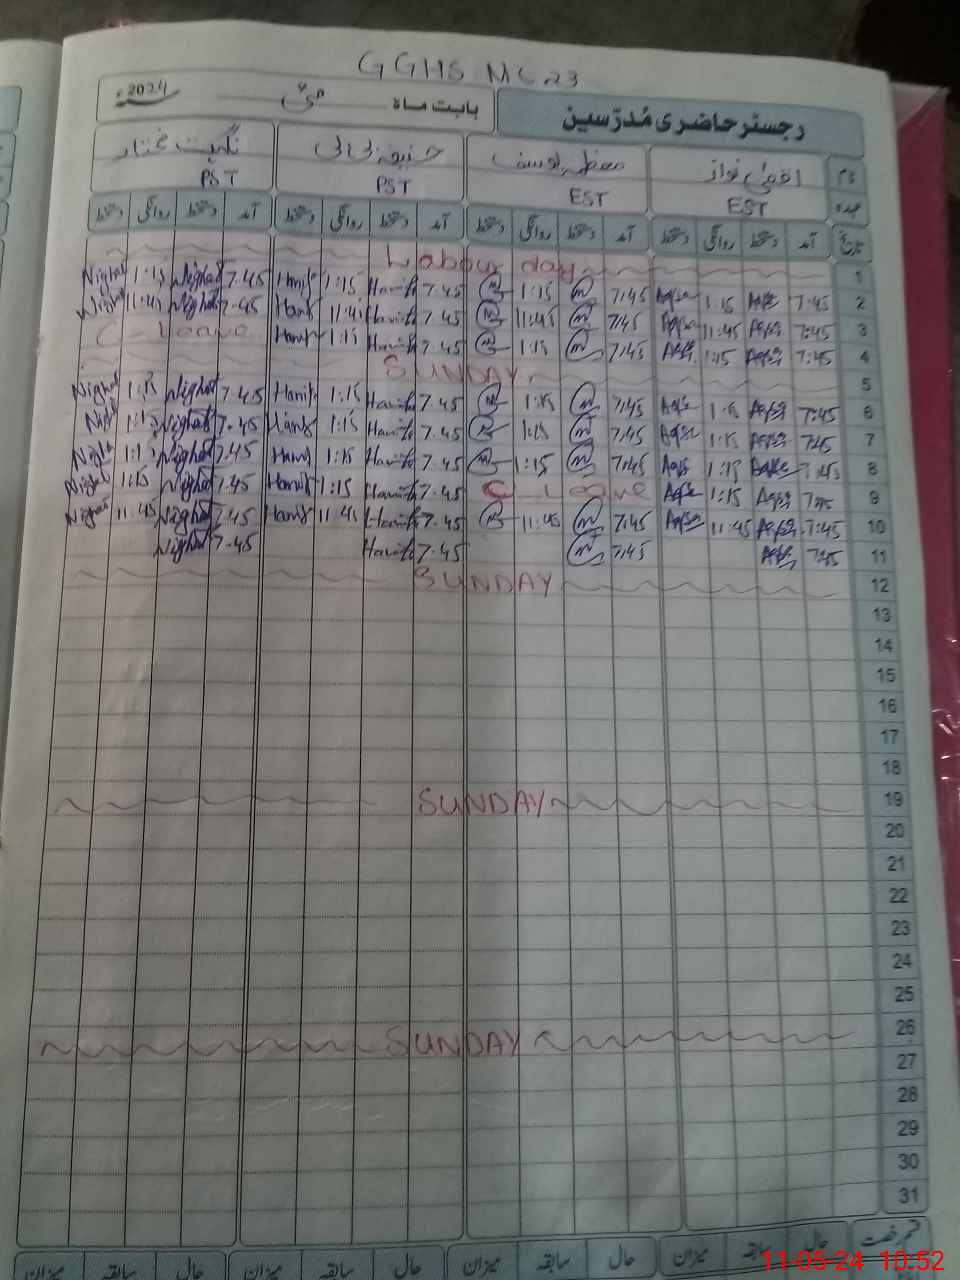 GGHS MC 23
رجسٹر حاضری مُدرّسین بابت ماہ مئی 2024ء
نام اقصیٰ نواز یوسف حنیفہ بی بی نگہت مختار
عہدہ EST EST PST PST
تاریخ آمد دستخط روانگی دستخط آمد دستخط روانگی دستخط آمد دستخط روانگی دستخط آمد دستخط روانگی دستخط
1 Labour day
Nighat 1:15 Nighat 7.45 Hanif 1:15 Hanifa 7.45 1:15 7:45 Aqsa 1:15 Aqsa 7:45 2
Nighat 11:45 Nighat 7.45 Hanif 11:45 Hanifa 7.45 11:45 7:45 Aqsa 11:45 Aqsa 7:45 3
C-Leave Hanif 1:15 Hanifa 7.45 1:15 7:45 Aqsa 1:15 Aqsa 7:45 4
SUNDAY 5
Nighat 1:15 Nighat 7.45 Hanif 1:15 Hanifa 7.45 1:15 7:45 Aqsa 1:15 Aqsa 7:45 6
Nighat 1:15 Nighat 7.45 Hanif 1:15 Hanifa 7.45 1:15 7:45 Aqsa 1:15 Aqsa 7:45 7
Nighat 1:15 Nighat 7.45 Hanif 1:15 Hanifa 7.45 1:15 7:45 Aqsa 1:15 Aqsa 7:45 8
Nighat 1:15 Nighat 7.45 Hanif 1:15 Hanifa 7.45 C-Leave Aqsa 1:15 Aqsa 7:45 9
Nighat 11:45 Nighat 7.45 Hanif 11:45 Hanifa 7.45 11:45 7:45 Aqsa 11:45 Aqsa 7:45 10
Nighat 7.45 Hanifa 7.45 7:45 Aqsa 7:45 11
SUNDAY 12
13
14
15
16
17
18
SUNDAY 19
20
21
22
23
24
25
SUNDAY 26
27
28
29
30
31
قسم رخصت حال سابقہ میزان حال سابقہ میزان حال سابقہ میزان حال سابقہ میزان
11-05-24 10:52